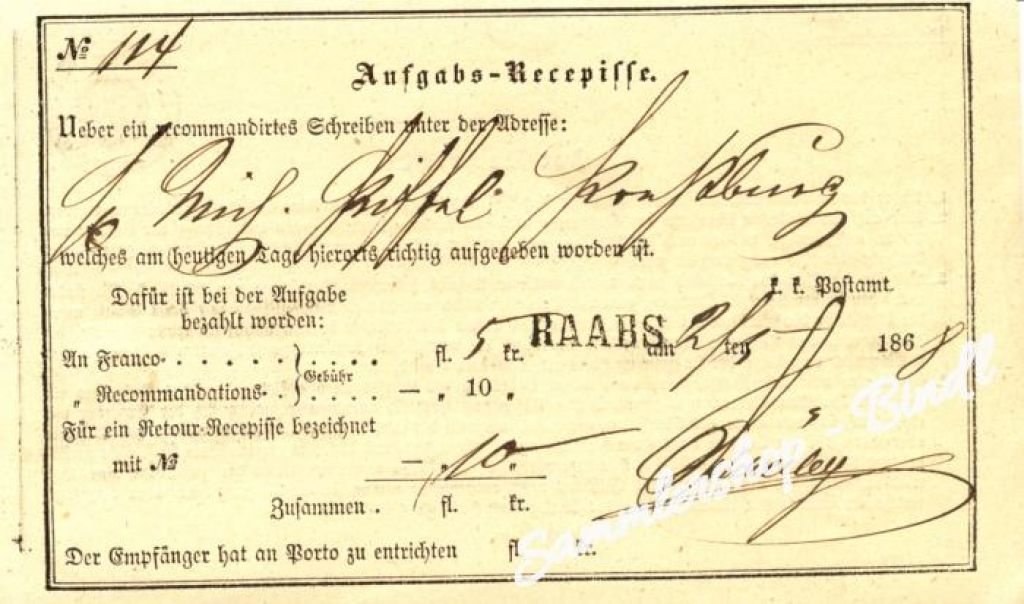 № 114
Aufgabs-Recepisse.
Ueber ein recommandirtes Schreiben unter der Adresse:
Mich.
welches am heutigen Tage hierorts richtig aufgegeben worden ist.
Dafür ist bei der Aufgabe
bezahlt worden:
k. k. Postamt
RAABS
An Franco- . . . . . . } . . . . fl. 5 kr. am 2/5 ten 1868
Gebühr
„ Recommandations- . . } . . . . — „ 10 „
Für ein Retour-Recepisse bezeichnet
mit № — „ 10 „
Zusammen . fl. kr.
Der Empfänger hat an Porto zu entrichten fl. kr.
Sammlershop - Bindl